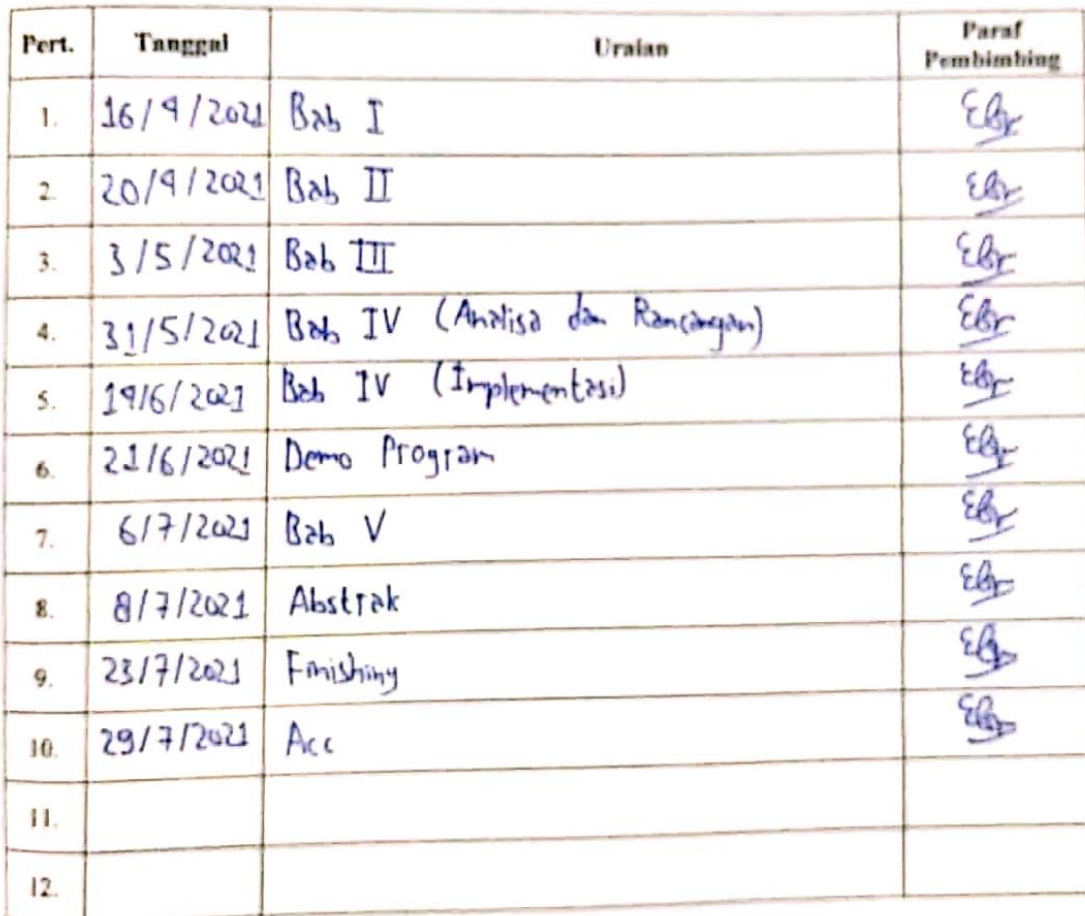 Pert. Tanggal Uraian Paraf Pembimbing
1. 16/4/2021 Bab I
2. 20/4/2021 Bab II
3. 3/5/2021 Bab III
4. 31/5/2021 Bab IV (Analisa dan Rancangan)
5. 14/6/2021 Bab IV (Implementasi)
6. 21/6/2021 Demo Program
7. 6/7/2021 Bab V
8. 8/7/2021 Abstrak
9. 23/7/2021 Finishing
10. 29/7/2021 Acc
11.
12.